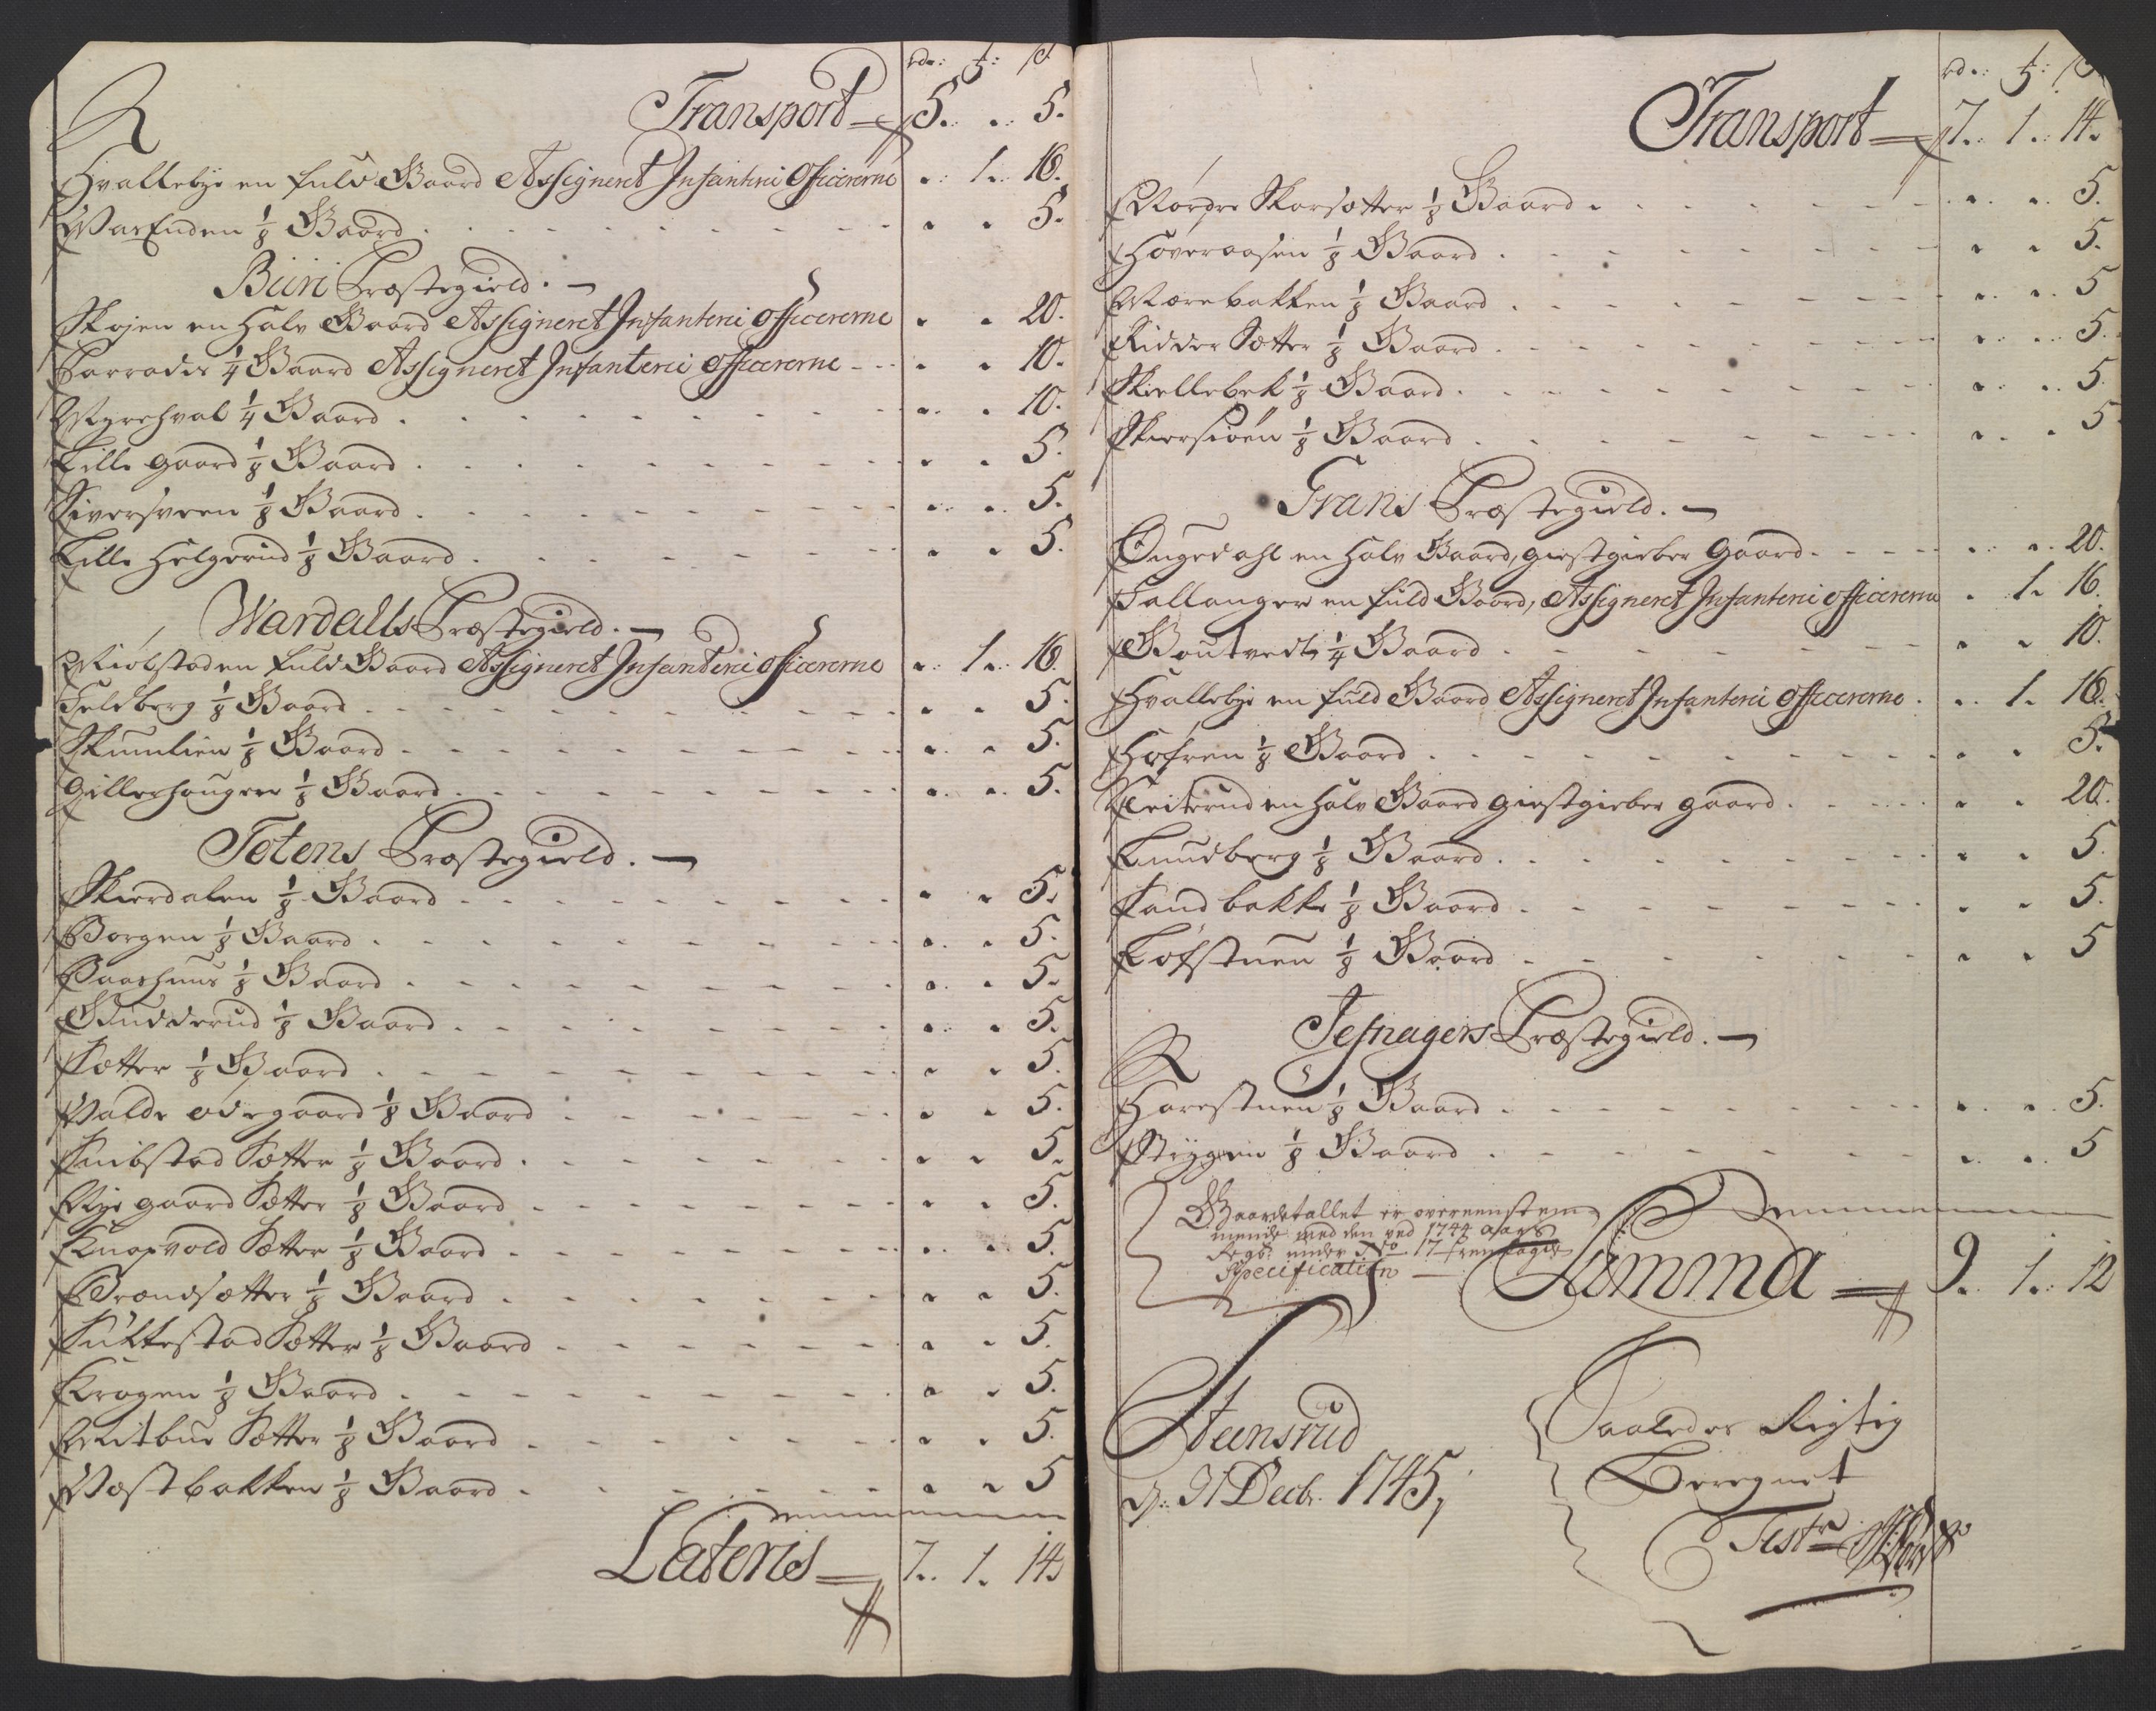 rdr: ƒ: ß
Transport 5. .. 5.
Hvallebye en fuld Gaard Assigneret Infanteri Officererne .. 1.. 16.
VarEnden 1/8 Gaard . . 5.
Biiri Præstegield.
Skojen en halv Gaard Assigneret Infanteri Officererne . . 20.
1/4 Gaard Assigneret Infanteri Officererne . . 10.
Myrehval 1/4 Gaard . . 10.
Lille gaard 1/8 Gaard . . 5.
Siversveen 1/8 Gaard . . 5.
Lille Helgerud 1/8 Gaard . . 5.
Wardalls Præstegield.
Miølstad en fuld Gaard Assigneret Infanteri Officererne . 1. 16.
Feldberg 1/8 Gaard . . 5.
Skumlien 1/8 Gaard . . 5.
Gillerhaugen 1/8 Gaard . . 5.
Totens Præstegield.
Skierdalen 1/8 Gaard . . 5.
Borgen 1/8 Gaard . . 5.
Paashuus 1/8 Gaard . . 5.
Gudderud 1/8 Gaard . . 5.
Sætter 1/8 Gaard . . 5.
Valde ødegaard 1/8 Gaard . . 5.
Snibstad Sætter 1/8 Gaard . . 5.
Nye gaard Sætter 1/8 Gaard . . 5.
Knapvold Sætter 1/8 Gaard . . 5.
Brandsætter 1/8 Gaard . . 5.
Kultestad Sætter 1/8 Gaard . . 5.
Kragen 1/8 Gaard . . 5.
Mitbue Sætter 1/8 Gaard . . 5.
Vestbakken 1/8 Gaard . . 5
Lateris 7. 1. 14.
rdr: ƒ: ß
Transport 7. 1. 14.
Nordre Skarsætter 1/8 Gaard . . 5.
Høveraasen 1/8 Gaard . . 5.
Mærebakken 1/8 Gaard . . 5
Ridder Sætter 1/8 Gaard . . 5.
Skiellebek 1/8 Gaard . . 5
Skiersiøen 1/8 Gaard . . 5
Grans Præstegield.
Ougedahl en halv Gaard, giestgieber Gaard . . 20.
Hallanger en fuld Gaard, Assigneret Infanteri officererne . 1. 16.
Goutvedt 1/4 Gaard . . 10.
Hvallebye en fuld Gaard Assigneret Infanteri Officererne . 1. 16.
Hofren 1/8 Gaard . . 5.
Kleiterud en halv Gaard giestgieber gaard . . 20.
Knudberg 1/8 Gaard . . 5.
Sandbakke 1/8 Gaard . . 5.
Lofstuen 1/8 Gaard . . 5
Jefnagers Præstegield.
Harestuen 1/8 Gaard . . 5.
Stryggen 1/8 Gaard . . 5
Gaardetallet er overeenstem
mende med den ved 1744 Aars
Regb: under No 17 fremlagde
Specification
Summa 9. 1. 12
Steensrud
d: 31 Decb. 1745,
Saaledes Rigtig
Beregnet
Test